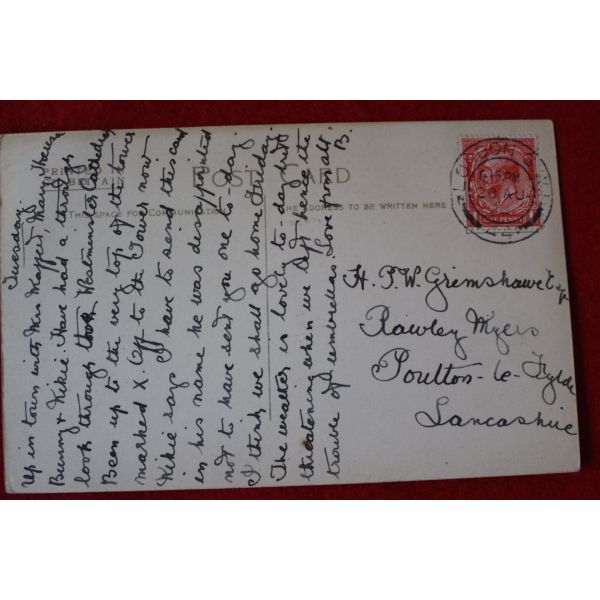 Tuesday
Up in town with Mrs Maffert, Mary Therese
Bunny & Kikie. Have had a thorough
look through took Westminster Cathedral
Been up to the very top of the tower
marked X. Off to the Tower now
Kikie says I have to send this card
in his name he was disappointed
not to have sent you one to-day.
I think we shall go home Friday.
The weather is lovely to-day but
threatening when we left hence the
trouble of umbrellas. Love from all
B.
PRINTED IN
BRITAIN
POST CARD
THIS SPACE FOR COMMUNICATION
THE ADDRESS TO BE WRITTEN HERE
LONDON
6.15 PM
ONE PENNY
H. P. W. Grimshawe Esq
Rawley Myers
Poulton-le-Fylde
Lancashire